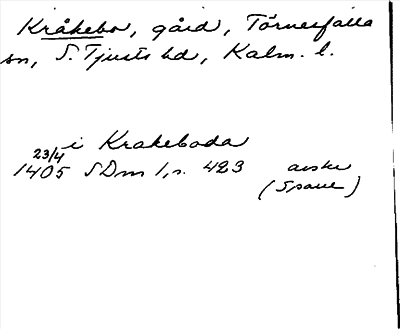 Kråkebo, gård, Törnesfalla
sn, S. Tjusts hd, Kalm. l.
i Krakeboda
23/4
1405 SDns 1, s. 423 avskr
(Spave)